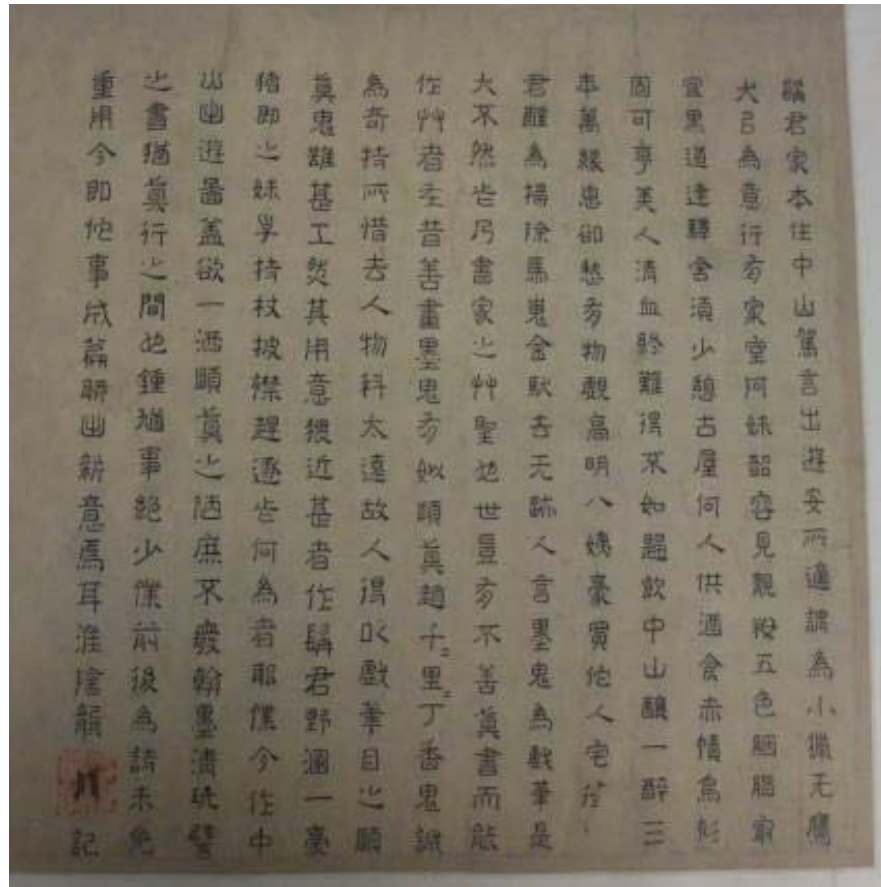 髯君家本住中山駕言出遊安所適謂為小獵无鷹
犬㠯為意行有家室阿妹韶容見靚妝五色胭脂最
宜黑道逢驛舍須少憩古屋何人供酒食赤幘烏衫
固可亨美人清血終難得不如歸飲中山釀一醉三
年萬緣息卻愁有物覷高明八姨豪買他人宅待
君醒為掃除馬嵬金馱去无跡人言墨鬼為戲筆是
大不然此乃書家之艸聖也世豈有不善真書而能
作艸者在昔善畫墨鬼有姒頤真趙千=里=丁香鬼誠
為奇特所惜去人物科太遠故人得以戲筆目之頤
真鬼雖甚工然其用意猥近甚者作髯君野溷一豪
豬即之妹子持杖披襟趕逐此何為者耶僕今作中
山出遊圖蓋欲一洒頤真之陋庶不廢翰墨清玩譬
之書猶真行之間也鍾馗事絕少僕前後為詩未免
重用今即他事成篇聊出新意焉耳淮陰龔開記